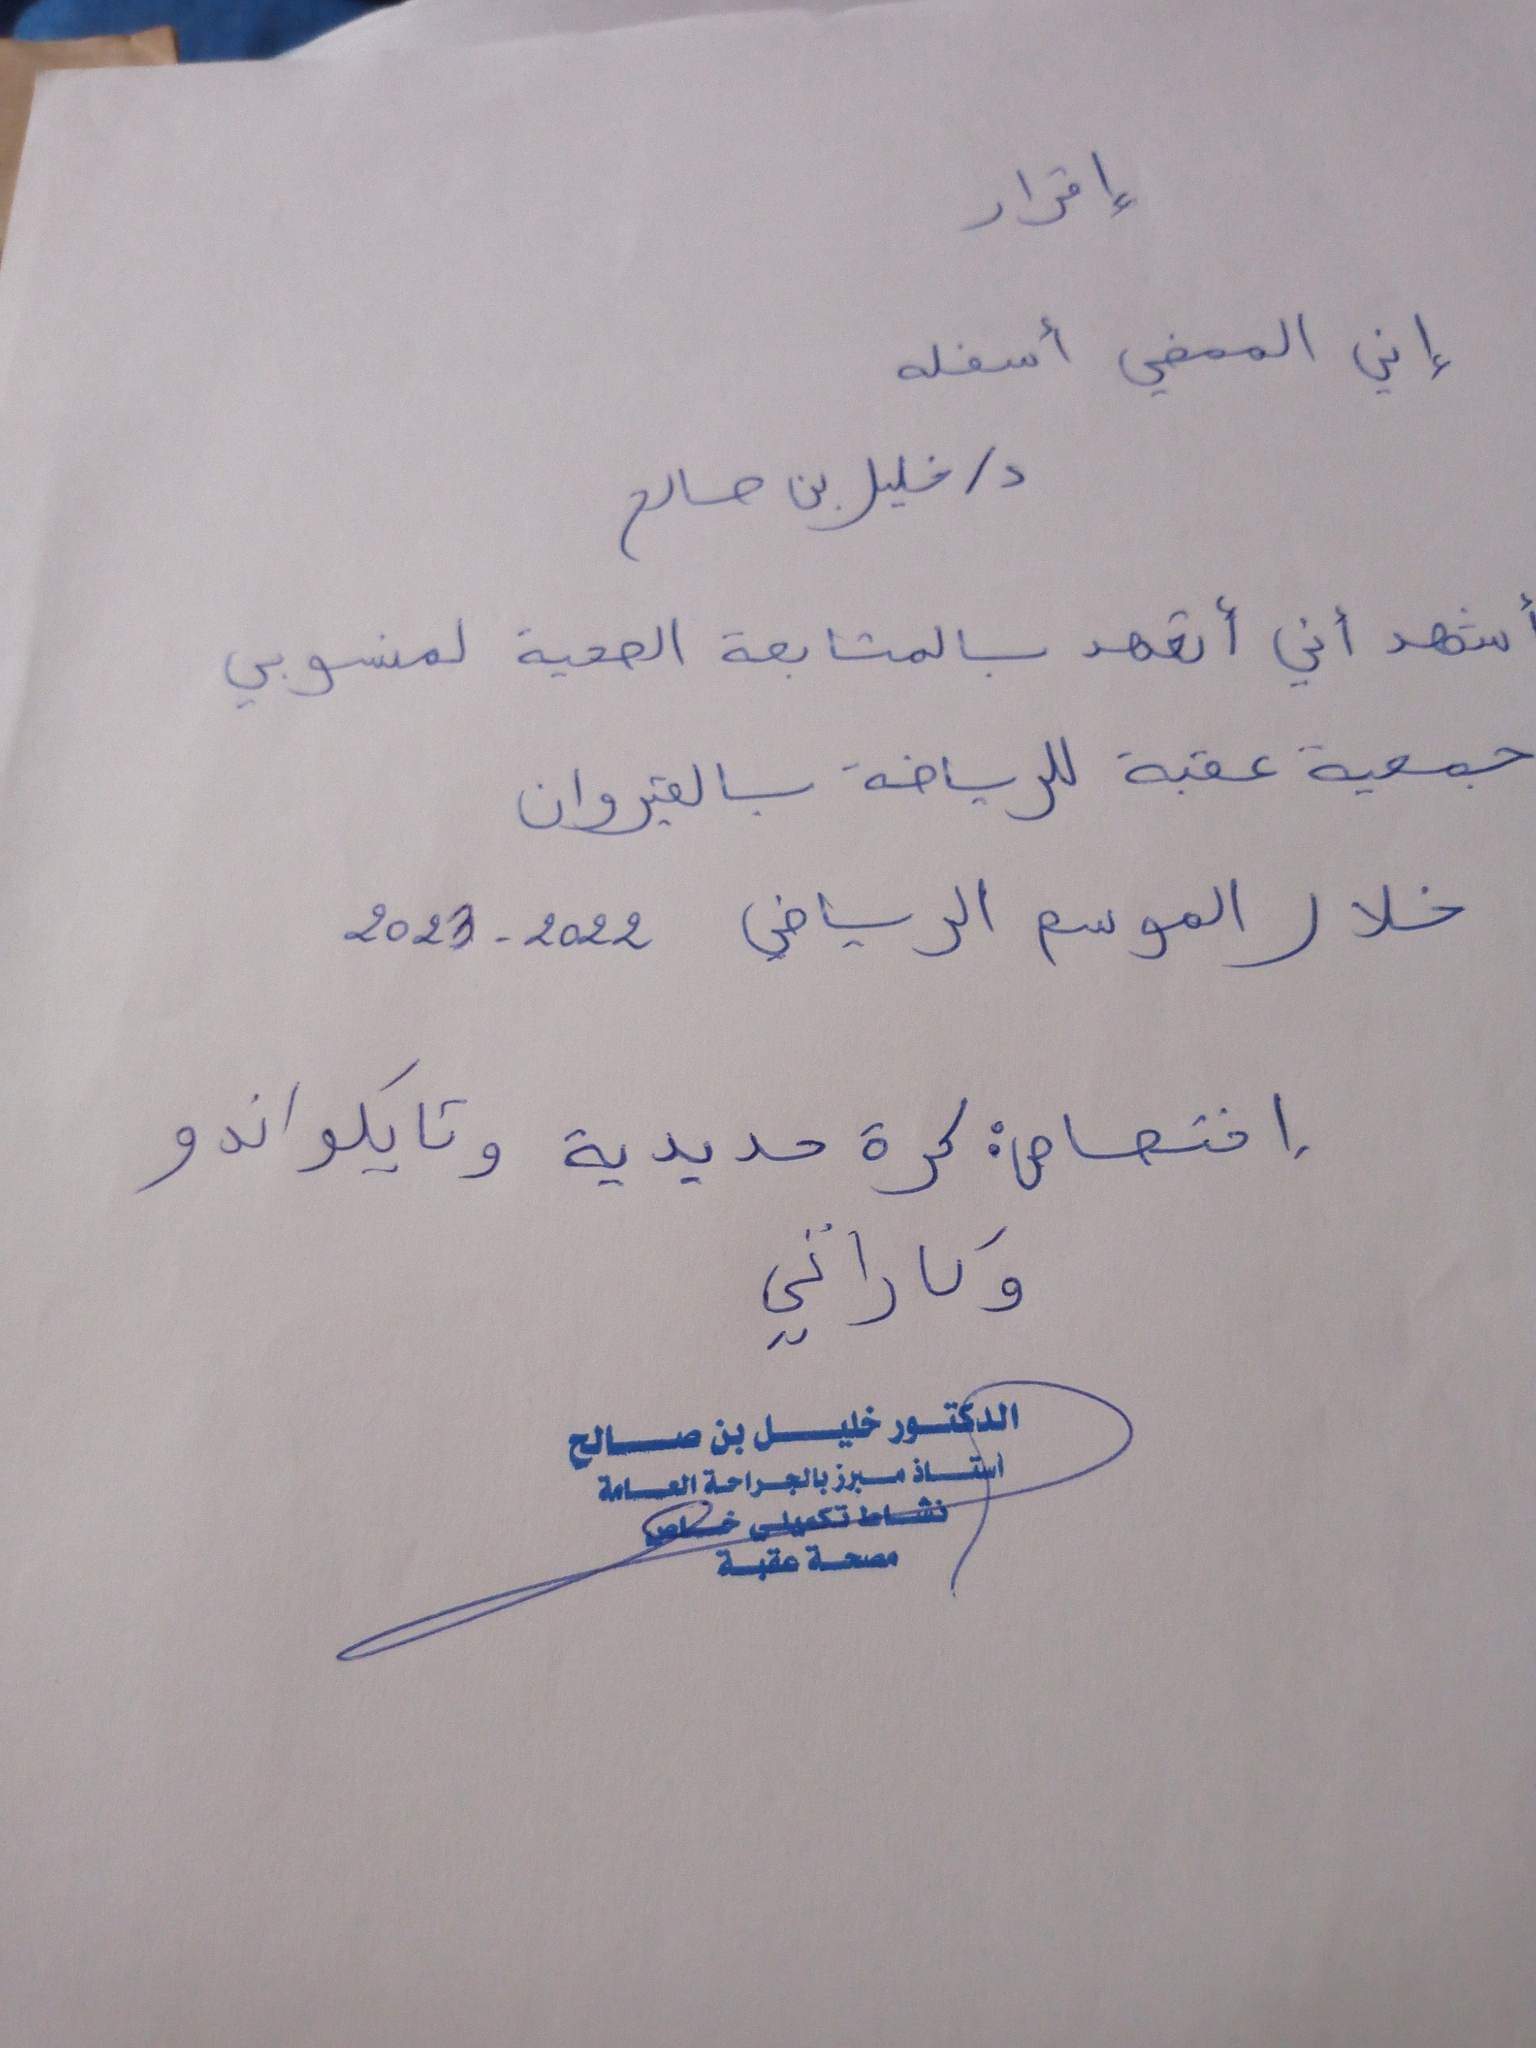 إقرار
إني الممضي أسفله
د/ خليل بن صالح
أشهد أني أتعهد بالمتابعة الصحية لمنسوبي
جمعية عقبة للرياضة بالقيروان
خلال الموسم الرياضي 2022-2023
إختصاص: كرة حديدية وتايكواندو
وكاراتي
الدكتور خليل بن صالح
أستاذ مبرز بالجراحة العامة
نشاط تكميلي خاص
مصحة عقبة